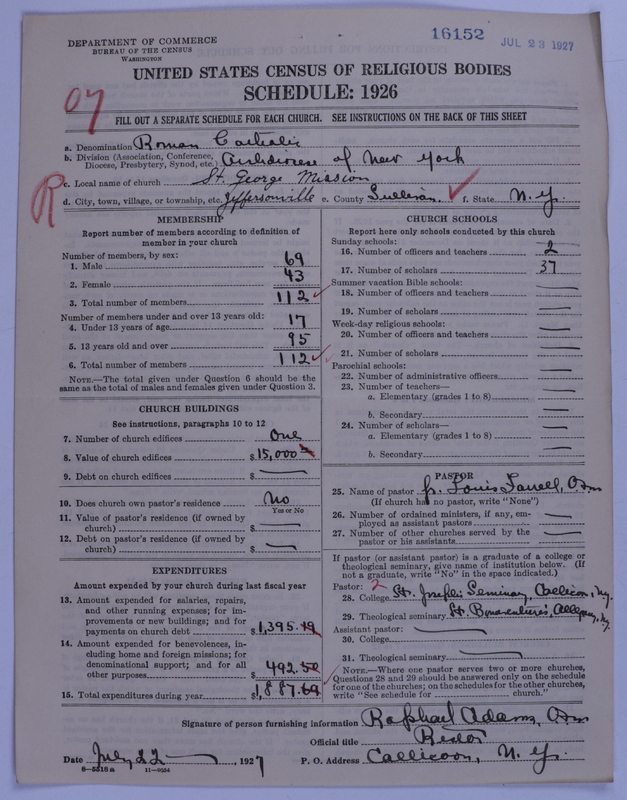 DEPARTMENT OF COMMERCE
BUREAU OF THE CENSUS
WASHINGTON
16152
JUL 23 1927
UNITED STATES CENSUS OF RELIGIOUS BODIES
SCHEDULE: 1926
07
FILL OUT A SEPARATE SCHEDULE FOR EACH CHURCH. SEE INSTRUCTIONS ON THE BACK OF THIS SHEET
a. Denomination Roman Catholic
b. Division (Association, Conference, Diocese, Presbytery, Synod, etc.) Archdiocese of New York
R
c. Local name of church St. George Mission
d. City, town, village, or township, etc. Jeffersonville e. County Sullivan. f. State N.Y.
MEMBERSHIP
Report number of members according to definition of
member in your church
Number of members, by sex:
1. Male 69
2. Female 43
3. Total number of members 112
Number of members under and over 13 years old:
4. Under 13 years of age 17
5. 13 years old and over 95
6. Total number of members 112
NOTE.—The total given under Question 6 should be
same as the total of males and females given under Question 3.
CHURCH BUILDINGS
See instructions, paragraphs 10 to 12
7. Number of church edifices One
8. Value of church edifices $15,000
9. Debt on church edifices $ —
10. Does church own pastor's residence No
Yes or No
11. Value of pastor's residence (if owned by
church) $ —
12. Debt on pastor's residence (if owned by
church) $ —
EXPENDITURES
Amount expended by your church during last fiscal year
13. Amount expended for salaries, repairs,
and other running expenses; for im-
provements or new buildings; and for
payments on church debt $1,395.19
14. Amount expended for benevolences, in-
cluding home and foreign missions; for
denominational support; and for all
other purposes $492.50
15. Total expenditures during year $1,887.69
CHURCH SCHOOLS
Report here only schools conducted by this church
Sunday schools:
16. Number of officers and teachers 2
17. Number of scholars 37
Summer vacation Bible schools:
18. Number of officers and teachers —
19. Number of scholars —
Week-day religious schools:
20. Number of officers and teachers —
21. Number of scholars —
Parochial schools:
22. Number of administrative officers —
23. Number of teachers—
a. Elementary (grades 1 to 8) —
b. Secondary —
24. Number of scholars—
a. Elementary (grades 1 to 8) —
b. Secondary —
PASTOR
25. Name of pastor Fr. Louis Farrell, O.F.M.
(If church has no pastor, write "None")
26. Number of ordained ministers, if any, em-
ployed as assistant pastors —
27. Number of other churches served by the
pastor or his assistants —
If pastor (or assistant pastor) is a graduate of a college or
theological seminary, give name of institution below. (If
not a graduate, write "No" in the space indicated.)
Pastor: 2
28. College St. Joseph's Seminary, Callicoon, N.Y.
29. Theological seminary St. Bonaventure's, Allegany, N.Y.
Assistant pastor: —
30. College
31. Theological seminary —
NOTE.—Where one pastor serves two or more churches,
Questions 28 and 29 should be answered only on the schedule
for one of the churches; on the schedules for the other churches,
write "See schedule for church."
Signature of person furnishing information Raphael Adams, O.F.M.
Official title Rector
Date July 22 —, 1927
P. O. Address Callicoon, N.Y.
8—5518a 11—9034